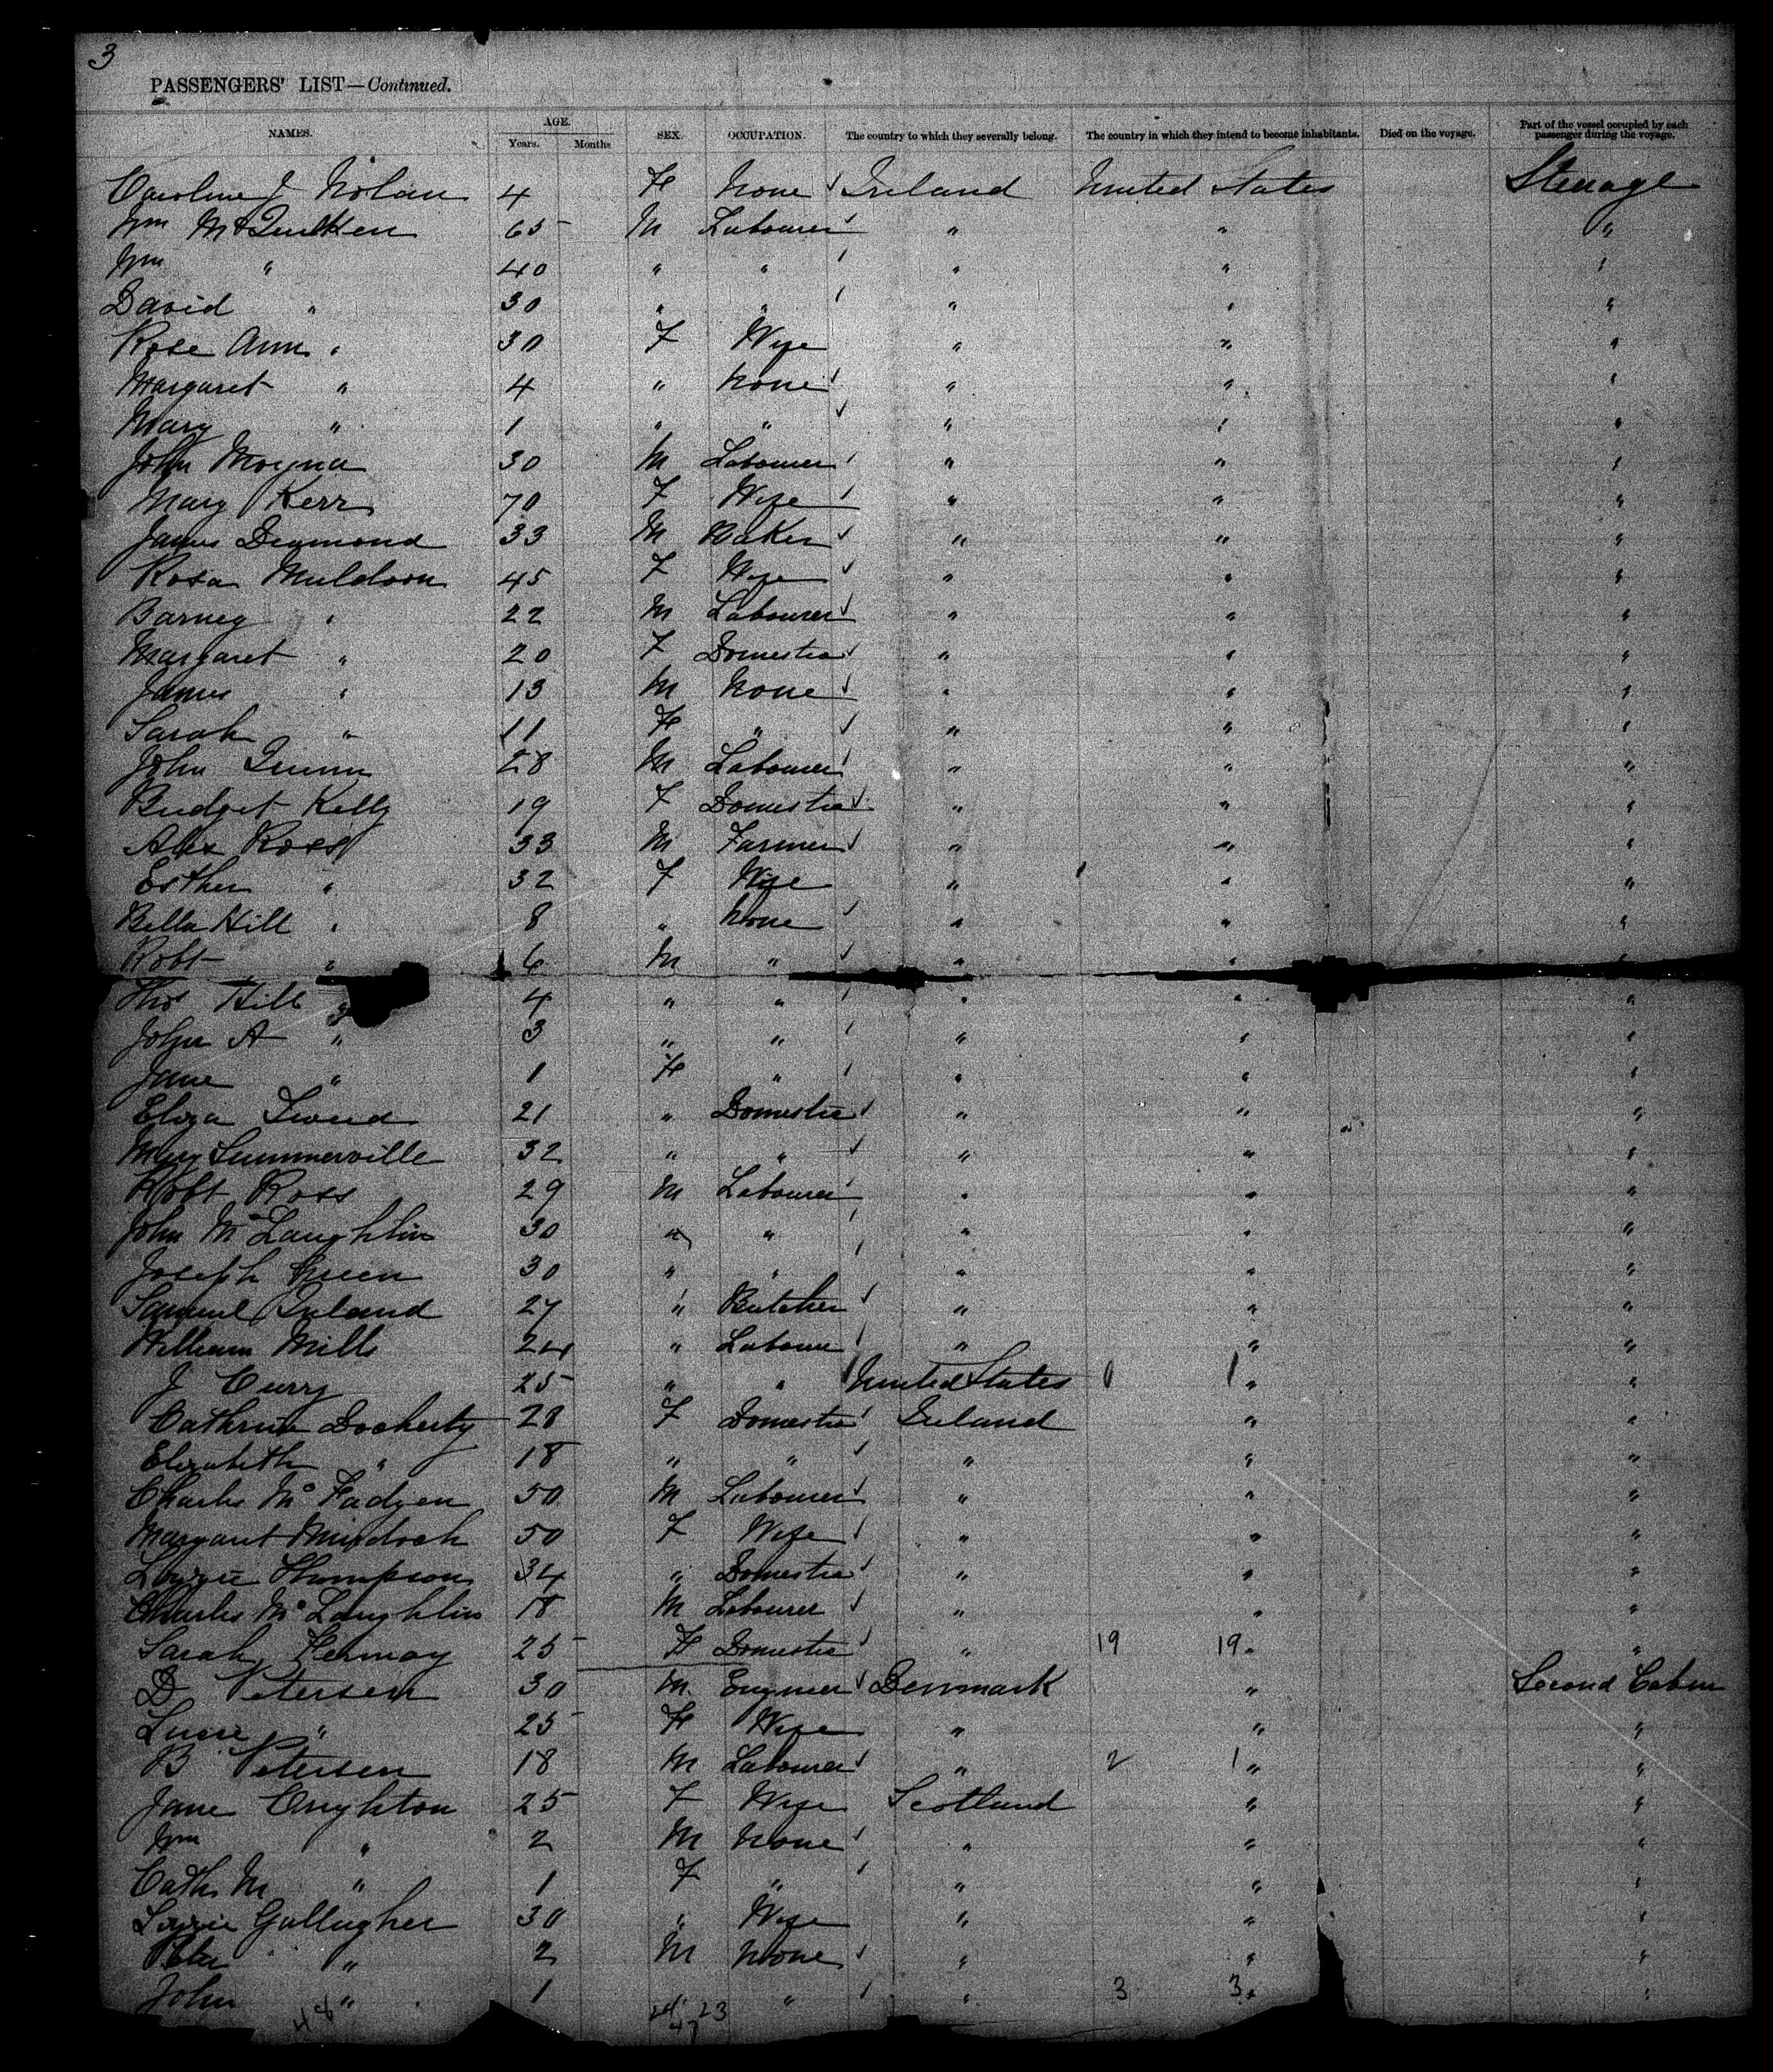 3
PASSENGERS' LIST—Continued.
NAMES. AGE. SEX. OCCUPATION. The country to which they severally belong. The country in which they intend to become inhabitants. Died on the voyage. Part of the vessel occupied by each passenger during the voyage.
Years. Months
Caroline J Nolan 4 F None Ireland United States Steerage
Wm 65 M Labourer " " "
Wm " 40 " " " " "
David " 30 " " " " "
Rose Ann " 30 F Wife " " "
Margaret " 4 " None " " "
Mary " 1 " " " " "
John Moyna 30 M Labourer " " "
Mary Kerr 70 F Wife " " "
James Desmond 33 M Baker " " "
Rosa Muldoon 45 F Wife " " "
Barney " 22 M Labourer " " "
Margaret " 20 F Domestic " " "
James " 13 M None " " "
Sarah " 11 F " " " "
John Quinn 28 M Labourer " " "
Bridget Kelly 19 F Domestic " " "
Alex Ross 33 M Farmer " " "
Esther " 32 F Wife " " "
Bella Hill " 8 " None " " "
Robt " 6 M " " " "
Thos Hill " 4 " " " " "
John A " 3 " " " " "
Jane " 1 F " " " "
Eliza 21 " Domestic " " "
Mary Summerville 32 " " " " "
Robt Ross 29 M Labourer " " "
John McLaughlin 30 " " " " "
Joseph Green 30 " " " " "
Samuel Ireland 27 " Butcher " " "
William Mills 24 " Labourer " " "
J Curry 25 " " United States 1 1 " "
Cathrine Docherty 28 F Domestic Ireland " "
Elizabeth " 18 " " " " "
Charles McFadyen 50 M Labourer " " "
Margaret Murdoch 50 F Wife " " "
Lizzie Thompson 34 " Domestic " " "
Charles McLaughlin 18 M Labourer " " "
Sarah 25 F Domestic " 19 19 " "
D Petersen 30 M Engineer Denmark " Second Cabin
" 25 F Wife " " "
B Petersen 18 M Labourer " 2 1 " "
Jane Crighton 25 F Wife Scotland " "
Wm " 2 M None " " "
Cath M " 1 F " " " "
Lizzie Gallagher 30 " Wife " " "
Peter " 2 M None " " "
John " 1 " " 3 3 " "
48 24 23
47